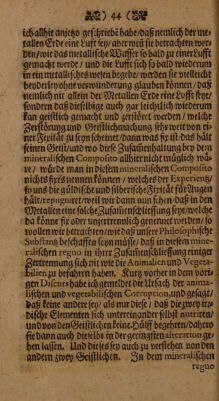 44
ich allhie anjetzo geschriebē habe/daß nemlich der me-
tallen Erde eine Lufft sey/aber weil sie betrachten wer-
den/wie das metallische Wasser so bald zu einer Lufft
gemacht werde/ und die Lufft sich so bald wiederum
in ein metallisches wesen begebe/werden sie vielleicht
beyderley ohne verwunderung glauben können/daß
nemlich nit allein der Metallen Erde eine Lufft seye/
sondern daß dieselbige auch gar leichtlich wiederum
kan geistlich gemacht und zerstöret werden/ welche
Zerstörung und Geistlichmachung sehr weit von ei-
ner Fixität zu seyn scheinet/dann was fix ist/das hält
seinen Geist/und wo diese Zusamenhaltung bey dem
mineralischen Composito allhie nicht möglich wä-
re/ würde man in diesem mineralischen Composito
nichts fixes nennen können/ welches der Experientz/
so uns die güldische und silberische Fixität für Augen
hält/repugniret/weil wir dann nun sehen/daß in den
Metallen eine solche Zusamenschliessung seye/welche
da könne fix oder unzertrennlich genennet werden/so
wollen wir betrachten/wie daß unsere Philosophische
Substanz beschaffen seyn müsse/daß in diesem mine-
ralischen regno in ihrer Zusamenschliessung einiger
Zertrennung sich nit wie die Animalien und Vegeta-
bilien zu befahren haben. Kurtz vorher in dem vori-
gen Discurs habe ich gemeldet die Ursach der anima-
lischen und vegetabilischen Corruption, und gesagt/
daß keine andere sey/ als nur diese/ daß die zwey ir-
dische Elementen sich untereinander selbst nutriren/
und von den Geistlichen keine Hülff begehren/dahero
sie dann auch dieselbe in der geringsten alteration ge-
hen lassen. Und dieses sey auch zu verstehen von den
andern zwey Geistlichen. In dem mineralischen
regno